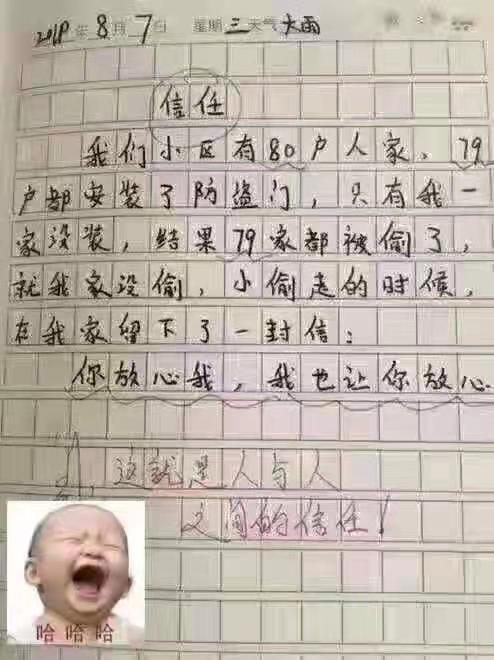 2019年8月7日 星期三 天气大雨
信任
我们小区有80户人家，79
户都安装了防盗门，只有我一
家没装，结果79家都被偷了，
就我家没偷，小偷走的时候，
在我家留下了一封信：
你放心我，我也让你放心
这就是人与人
之间的信任！
哈哈哈